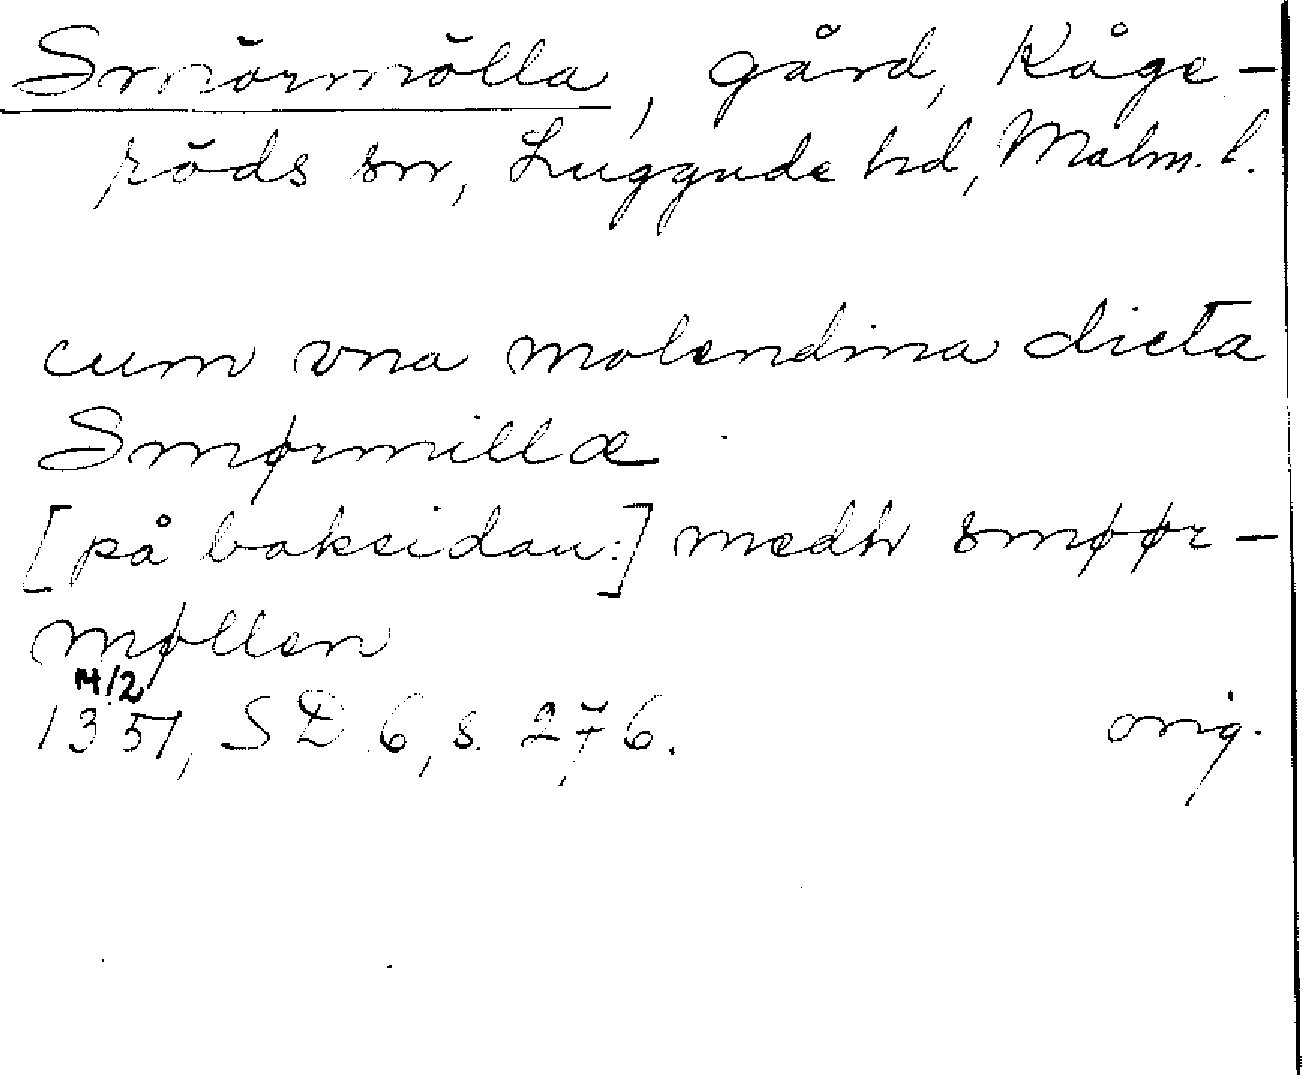 Smörmölla, gård, Kåge-
röds sn, Luggude hd, Malm. l.
cum vna molendina dicta
Smørmillæ
[på baksidan:] medh smøør-
møllen
14/2
1351, SD 6, s. 276. orig.